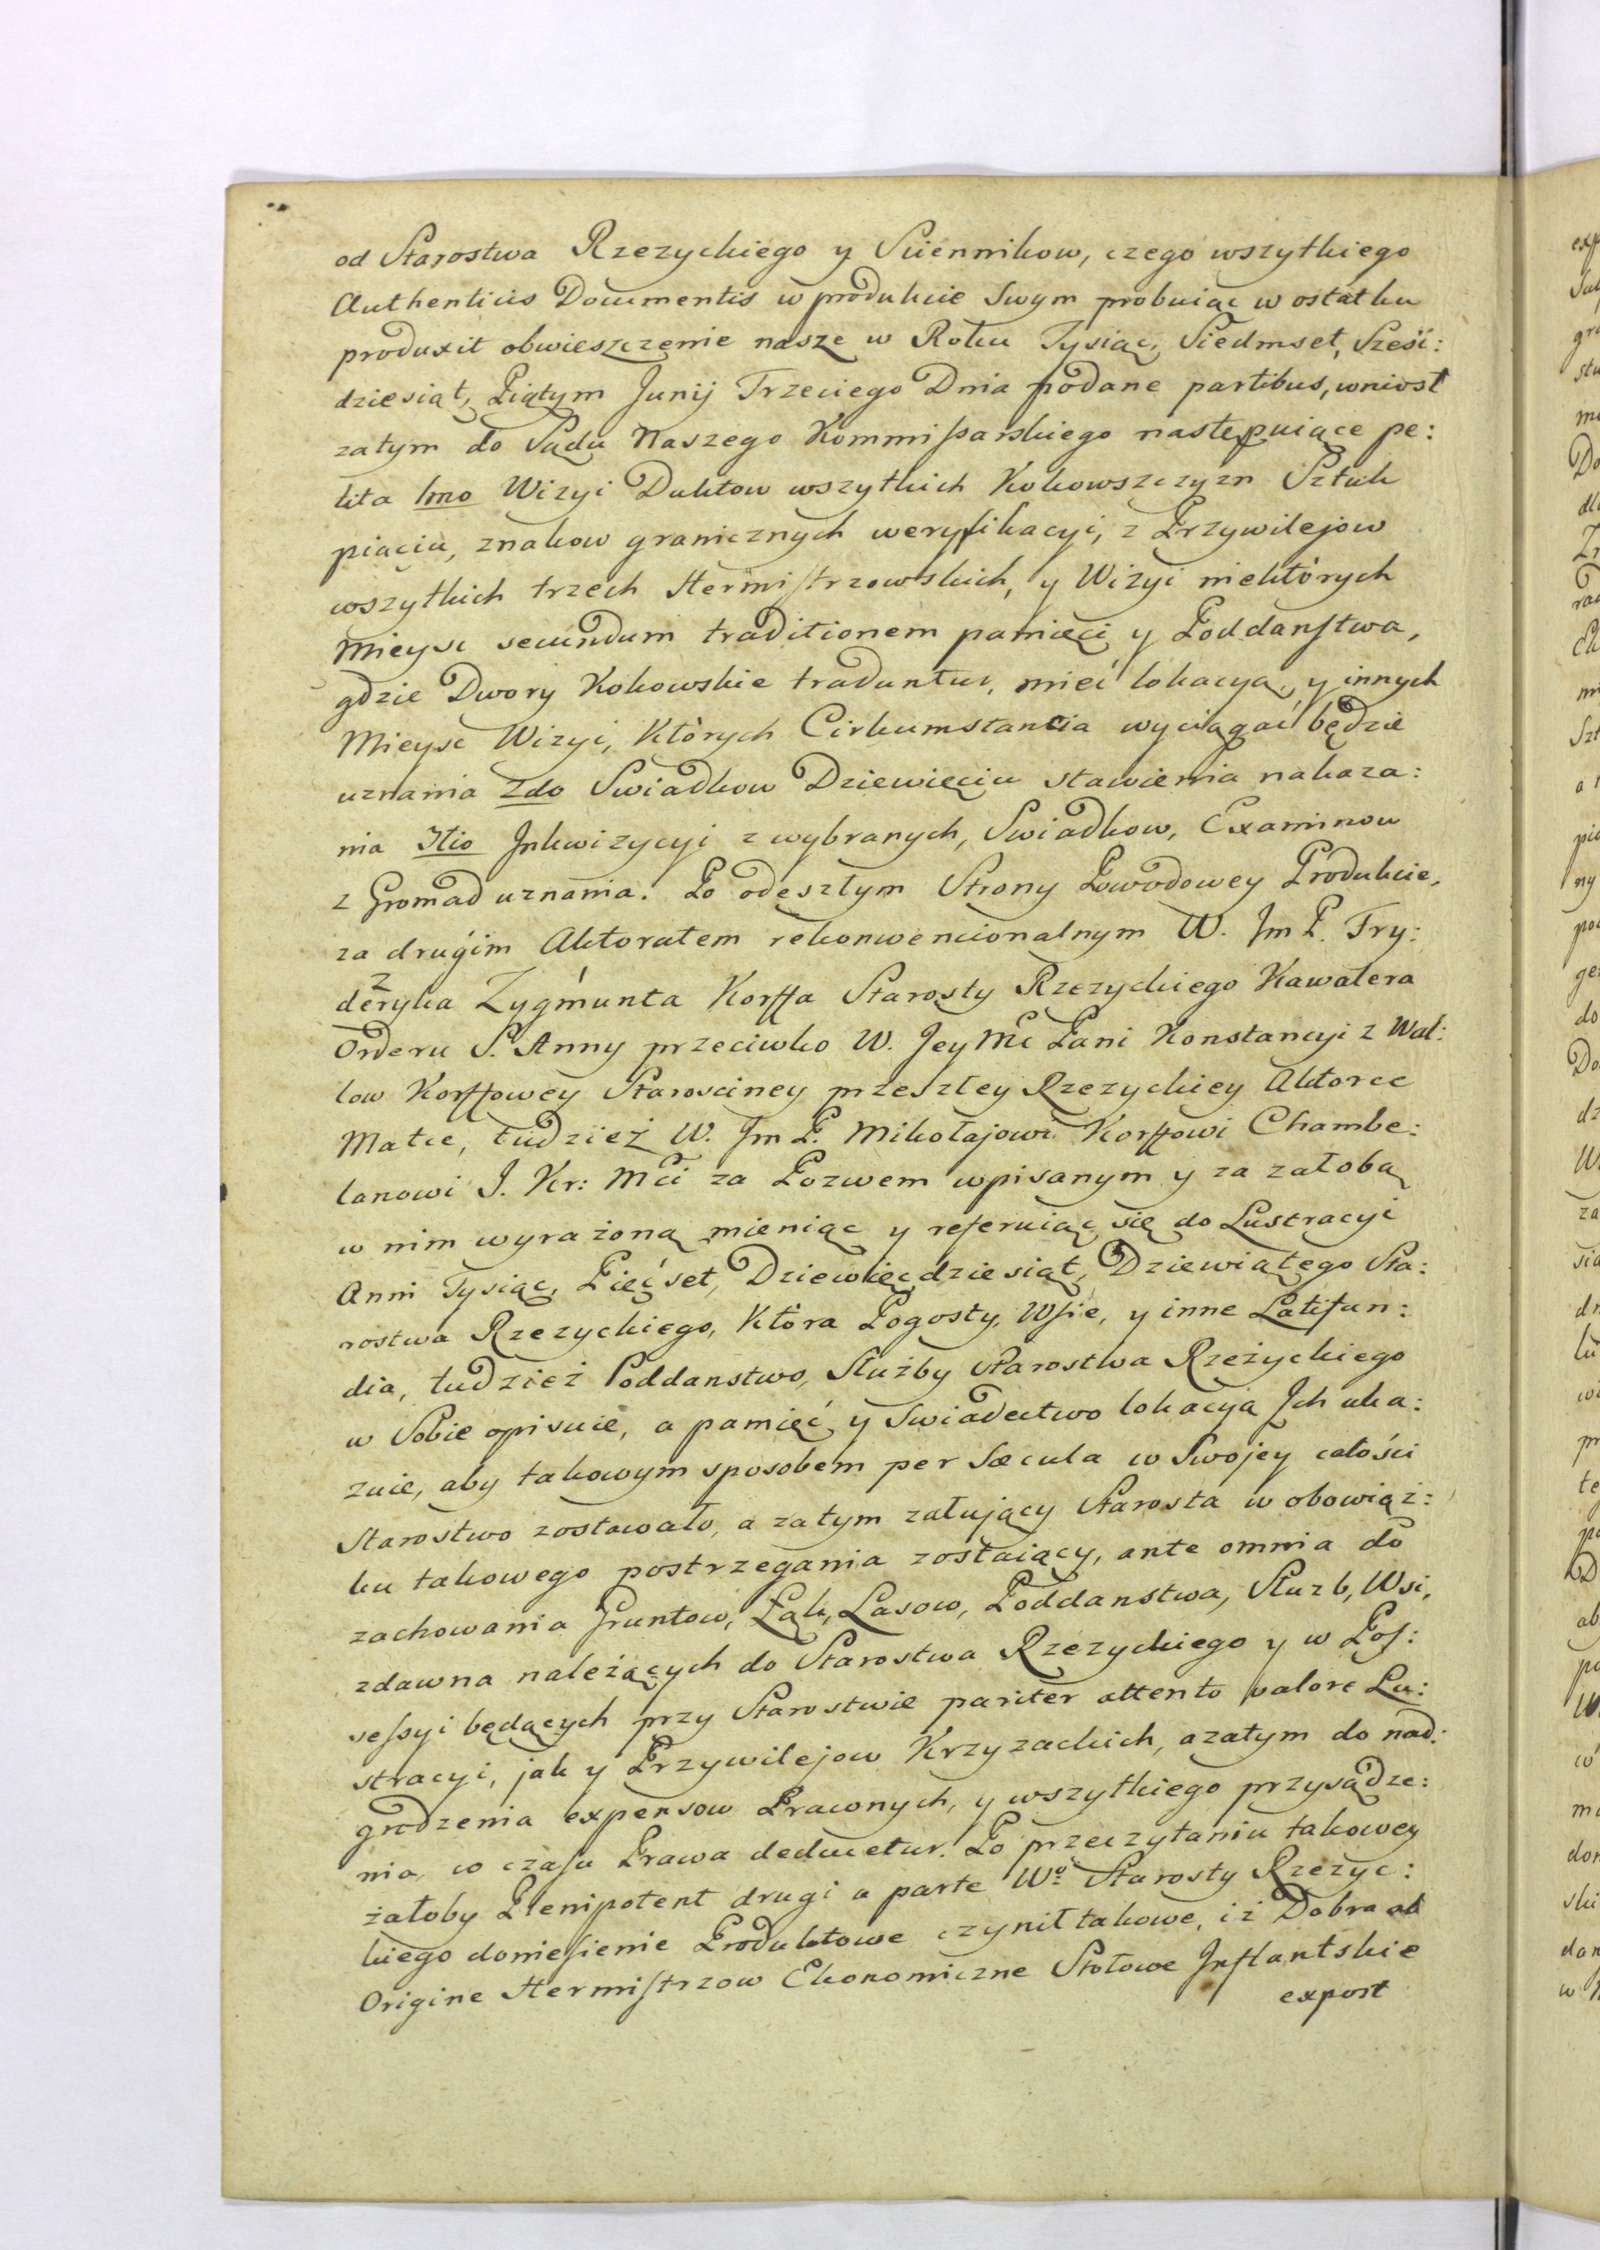 od Starostwa Rzezyckiego y Sciennikow, czego wszytkiego
Authenticis Documentis w produkcie Swym probuiąc w ostatku
produxit obwieszczenie nasze w Roku Tysiąc, Siedmset, Sześć:
dziesiąt, Piątym Junij Trzeciego Dnia podane partibus, wniosł
zatym do Sądu Naszego Kommissarskiego następuiące pe:
tita Imo Wizyi Duktow wszytkich Kokowszczyzn Sztuk
piaciu, znakow granicznych weryfikacyi, z Przywilejow
wszytkich trzech Hermistrzowskich, y Wizyi niektórych
Mieysc secundum traditionem pamięci y Poddanstwa,
gdzie Dwory Kokowskie traduntur, mieć lokacyą, y innych
Mieysc Wizyi, Których Cirkumstancia wyciągać będzie
uznania 2do Swiadkow Dziewięciu stawienia nakaza:
nia 3tio Inkwizycyi z wybranych, Swiadkow, Examinow
z Gromad uznania. Po odeszłym Strony Powodowey Produkcie,
za drugim Aktoratem rekonwencionalnym W. Jm P. Fry:
deryka Zygmunta Korffa Starosty Rzezyckiego Kawalera
Orderu S. Anny przeciwko W. Jey Mć Pani Konstancyi z Wal:
low Korffowey Starosciney przeszłey Rzezyckiey Aktorce
Matce, tudzież W. Jm P. Mikołajowi Korffowi Chambe:
lanowi J. Kr: Mći za Pozwem wpisanym y za załobą
w nim wyrażoną mieniąc y referuiąc się do Lustracyi
Anni Tysiąc, Pięćset, Dziewięcdziesiąt, Dziewiątego Sta:
rostwa Rzezyckiego, Która Pogosty, Wsie, y inne Latifun:
dia, tudzież Poddanstwo, Służby Starostwa Rzeżyckiego
w Sobie opisuie, a pamięć y swiadectwo lokacyą Jch uka:
zuie, aby takowym sposobem per Sæcula w Swojey całości
Starostwo zostawało, a zatym załujący Starosta w obowiąz:
ku takowego postrzegania zostaiący, ante omnia do
zachowania Gruntow, Łąk, Lasow, Poddanstwa, Służb, Wsi,
zdawna należących do Starostwa Rzezyckiego y w Pos:
sessyi będących przy Starostwie pariter attento valore Lu:
stracyi, jak y Przywilejow Krzyzackich, azatym do nad:
grodzenia expensow Prawnych, y wszytkiego przysądze:
nia, co czasu Prawa deducetur. Po przeczytaniu takowey
żałoby Plenipotent drugi a parte Wo Starosty Rzezyc:
kiego doniesienie Produktowe czynił takowe, iż Dobra ab
Origine Hermistrzow Ekonomiczne Stołowe Inflantskie
expost